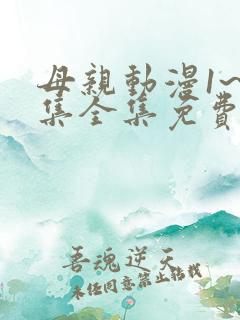 母親動漫1~
集全集免費
吾魂逆天
未经同意禁止转载